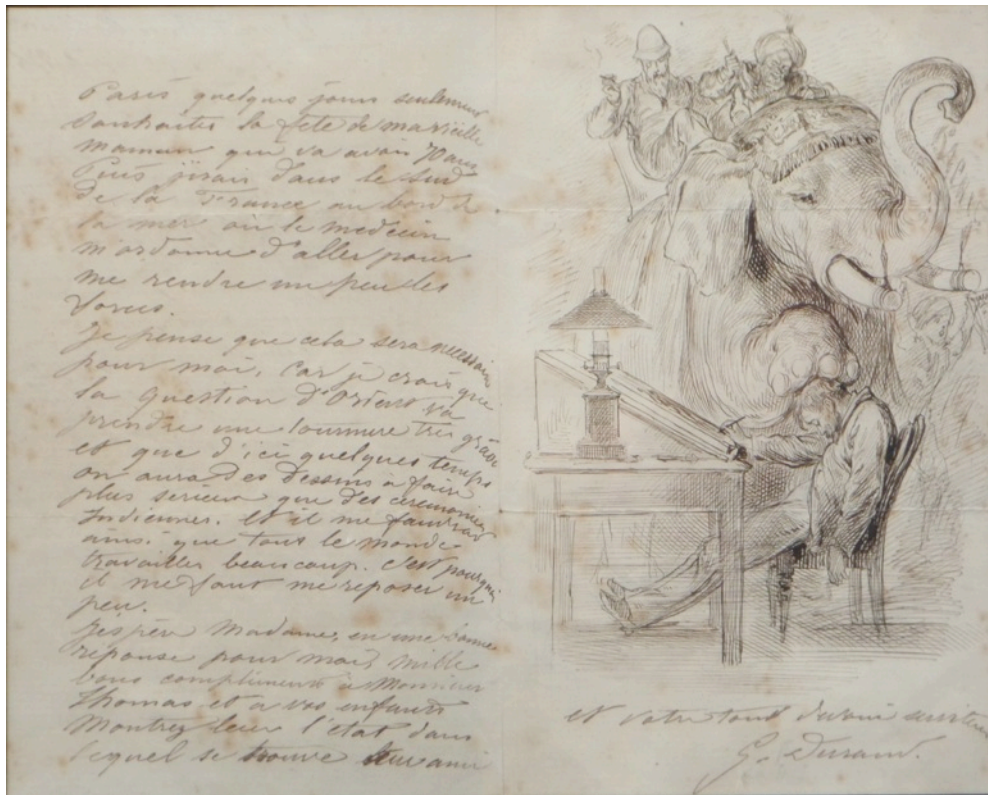 Paris quelques jours seulement
souhaiter la fete de ma vieille
maman qui va avoir 70 ans
Puis j'irais dans le Sud
de la France au bord de
la mer où le medecin
m'ordonne d'aller pour
me rendre un peu les
forces.
Je pense que cela sera necessaire
pour moi, car je crois que
la question d'Orient va
prendre une tournure très grave
et que d'ici quelques temps
on aura des dessins a faire
plus serieux que des ceremonies
Indiennes. et il me faudra
ainsi que tout le monde
travailler beaucoup. C'est pourquoi
il me faut me reposer un
peu.
J'espère Madame, en une bonne
reponse pour moi, mille
bons compliments à Monsieur
Thomas et a vos enfants
Montrez leur l'etat dans
lequel se trouve leur ami
et votre tout devoué serviteur
G. Durand.